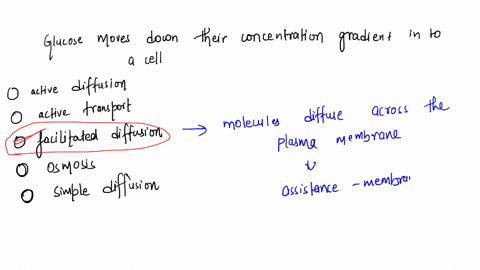 Glucose moves down their concentration gradient in to
a cell
active diffusion
active transport
facilitated diffusion
osmosis
simple diffusion
molecules diffuse across the
plasma membrane
assistance - membra